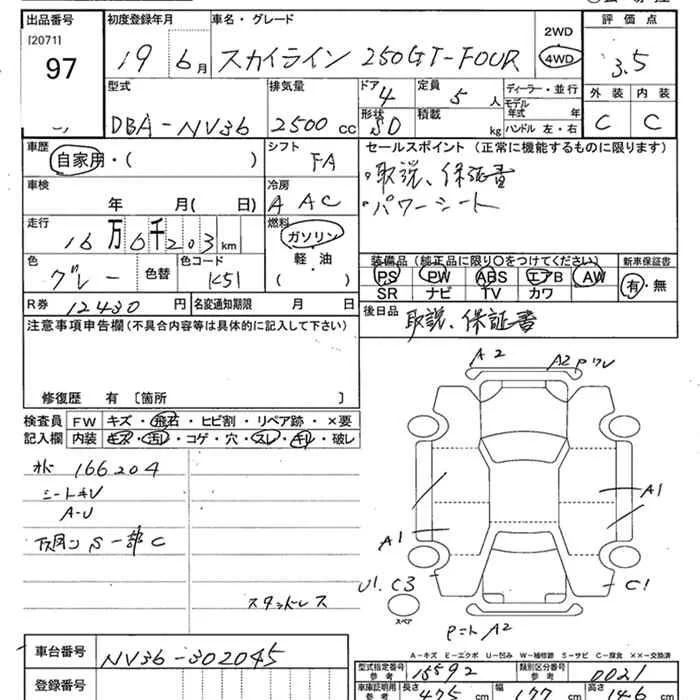 出品番号 初度登録年月 車名・グレード 2WD 評価点
[2071] 97 19 6月 スカイライン 250GT-FOUR 4WD 3.5
型式 排気量 ドア 4 定員 5人 ディーラー・並行 外装 内装
DBA-NV36 2500cc 形状 SD 積載 kg モデル年式 年 ハンドル 左・右 C C
車歴 自家用・( ) シフト FA セールスポイント (正常に機能するものに限ります)
・取説、保証書
・パワーシート
車検 年 月( 日) 冷房 AAC
走行 16万6千203km 燃料 ガソリン 軽・油 ( )
色 グレー 色替 色コード K51
装備品 (純正品に限り○をつけてください) 新車保証書
PS PW ABS エアB AW 有・無
SR ナビ TV カワ
R券 12430円 名変通知期限 月 日 後日品 取説、保証書
注意事項申告欄 (不具合内容等は具体的に記入して下さい)
修復歴 有 〔箇所 〕
検査員記入欄 FW キズ・飛石・ヒビ割・リペア跡・×要
内装 キズ・汚レ・コゲ・穴・スレ・キレ・破レ
166204
A-U
S一部C
スタッドレス
A2
A2
A1
A1
U1.C3
C1
スペア
A2
A-キズ E-エクボ U-凹み W-補修跡 S-サビ C-腐食 ××-交換済
車台番号 NV36-302045
登録番号
型式指定番号 参考 15592 類別区分番号 参考 0021
車庫証明用 参考 長さ 475cm 幅 177cm 高さ 146cm